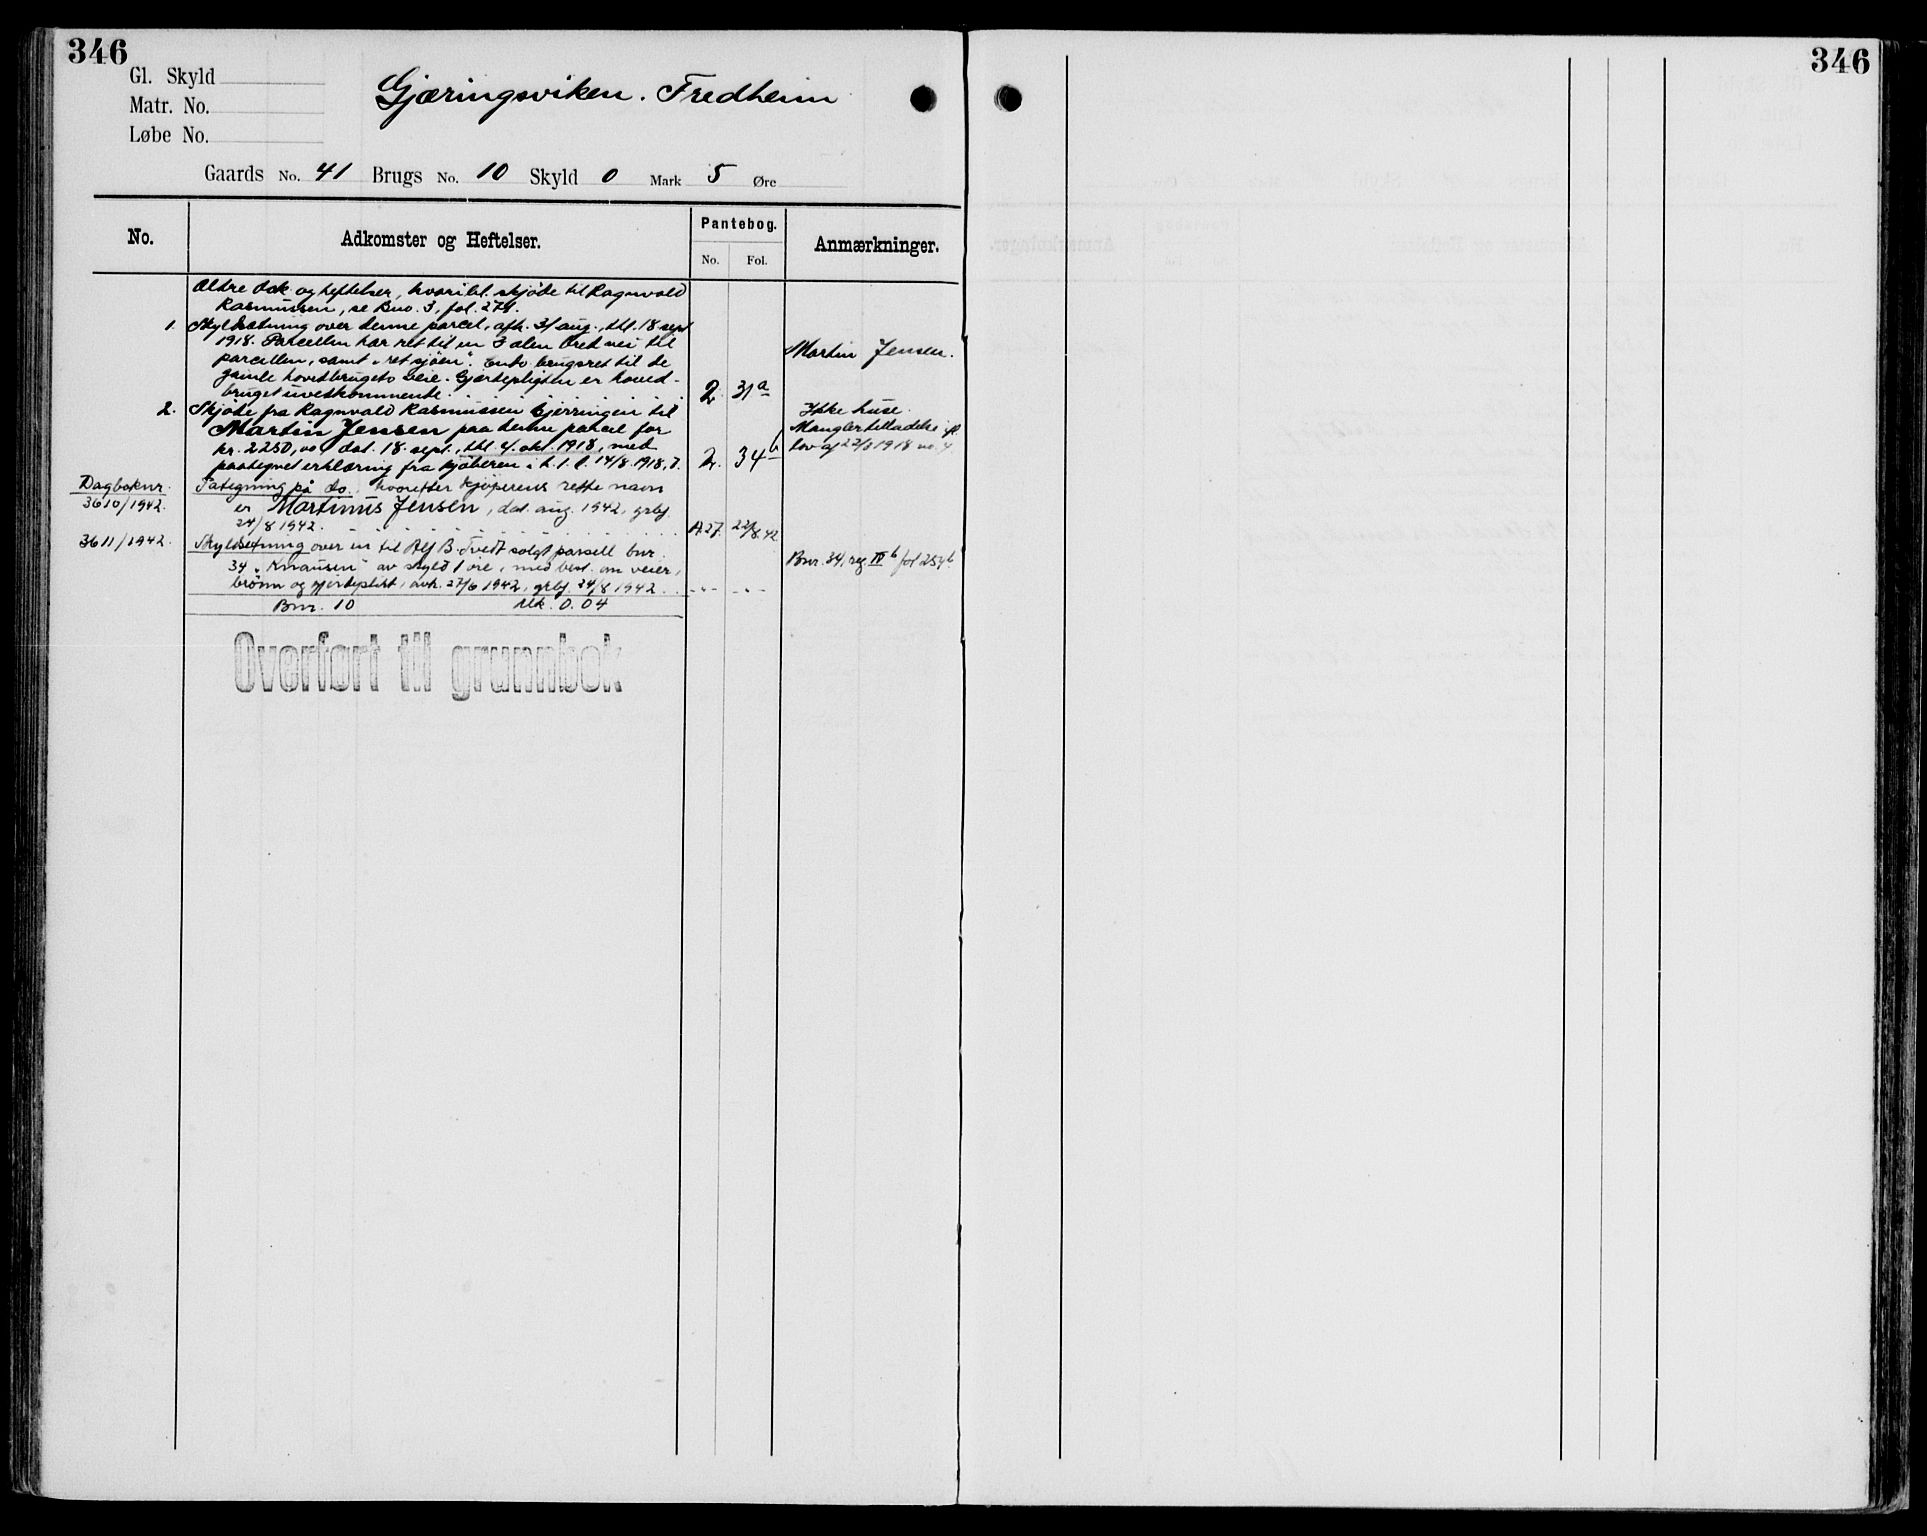 346
Gl. Skyld
Matr. No.
Løbe No.
Gjæringsviken. Fredheim
Gaards No. 41 Brugs No. 10 Skyld 0 Mark 5 Øre
No.
Adkomster og Heftelser.
Pantebog.
No. Fol.
Anmærkninger.
Ældre dok. og heftelser, hvoribl. skjøde til Ragnvald
Rasmussen, se Bno. 3, fol. 274.
1. Skyldsætning over denne parcel, afh. 31 aug., thl. 18 sept
1918. Parcellen har ret til en 3 alen bred vei til
parcellen, samt "ret sjøen". Endv. brugsret til de
gamle hovedbrugets veie. Gjærdepligten er hoved-
bruget uvedkommende. 2. 31a
Martin Jensen.
2. Skjøde fra Ragnvald Rasmussen Gjerringen til
Martin Jensen paa denne parcel for
kr. 2250, dat. 18. sept., thl. 4. okt. 1918, med
paategnet erklæring fra kjøberen i h. t. l. 14/8 1918, 7. 2. 34b
Ikke huse.
Mangler tilladelse
lov af 1918 no. 4
Dagboknr.
3610/1942.
Påtegning på do. hvoretter kjøperens rette navn
er Martinus Jensen, dat. aug. 1942, grbf.
24/8 1942. A27. 22/8.42
3611/1942. Skyldsetning over en til Alf B. Tvedt solgt parsell bnr.
34 "Knausen" av skyld 1 øre, med best. om veier,
brønn og gjerdeplikt, avh. 27/6 1942, grbf. 24/8 1942. . -"- -"-
Bnr. 34, reg. IV b fol 254b
Bnr. 10 Mk. 0.04
Overført til grunnbok
346